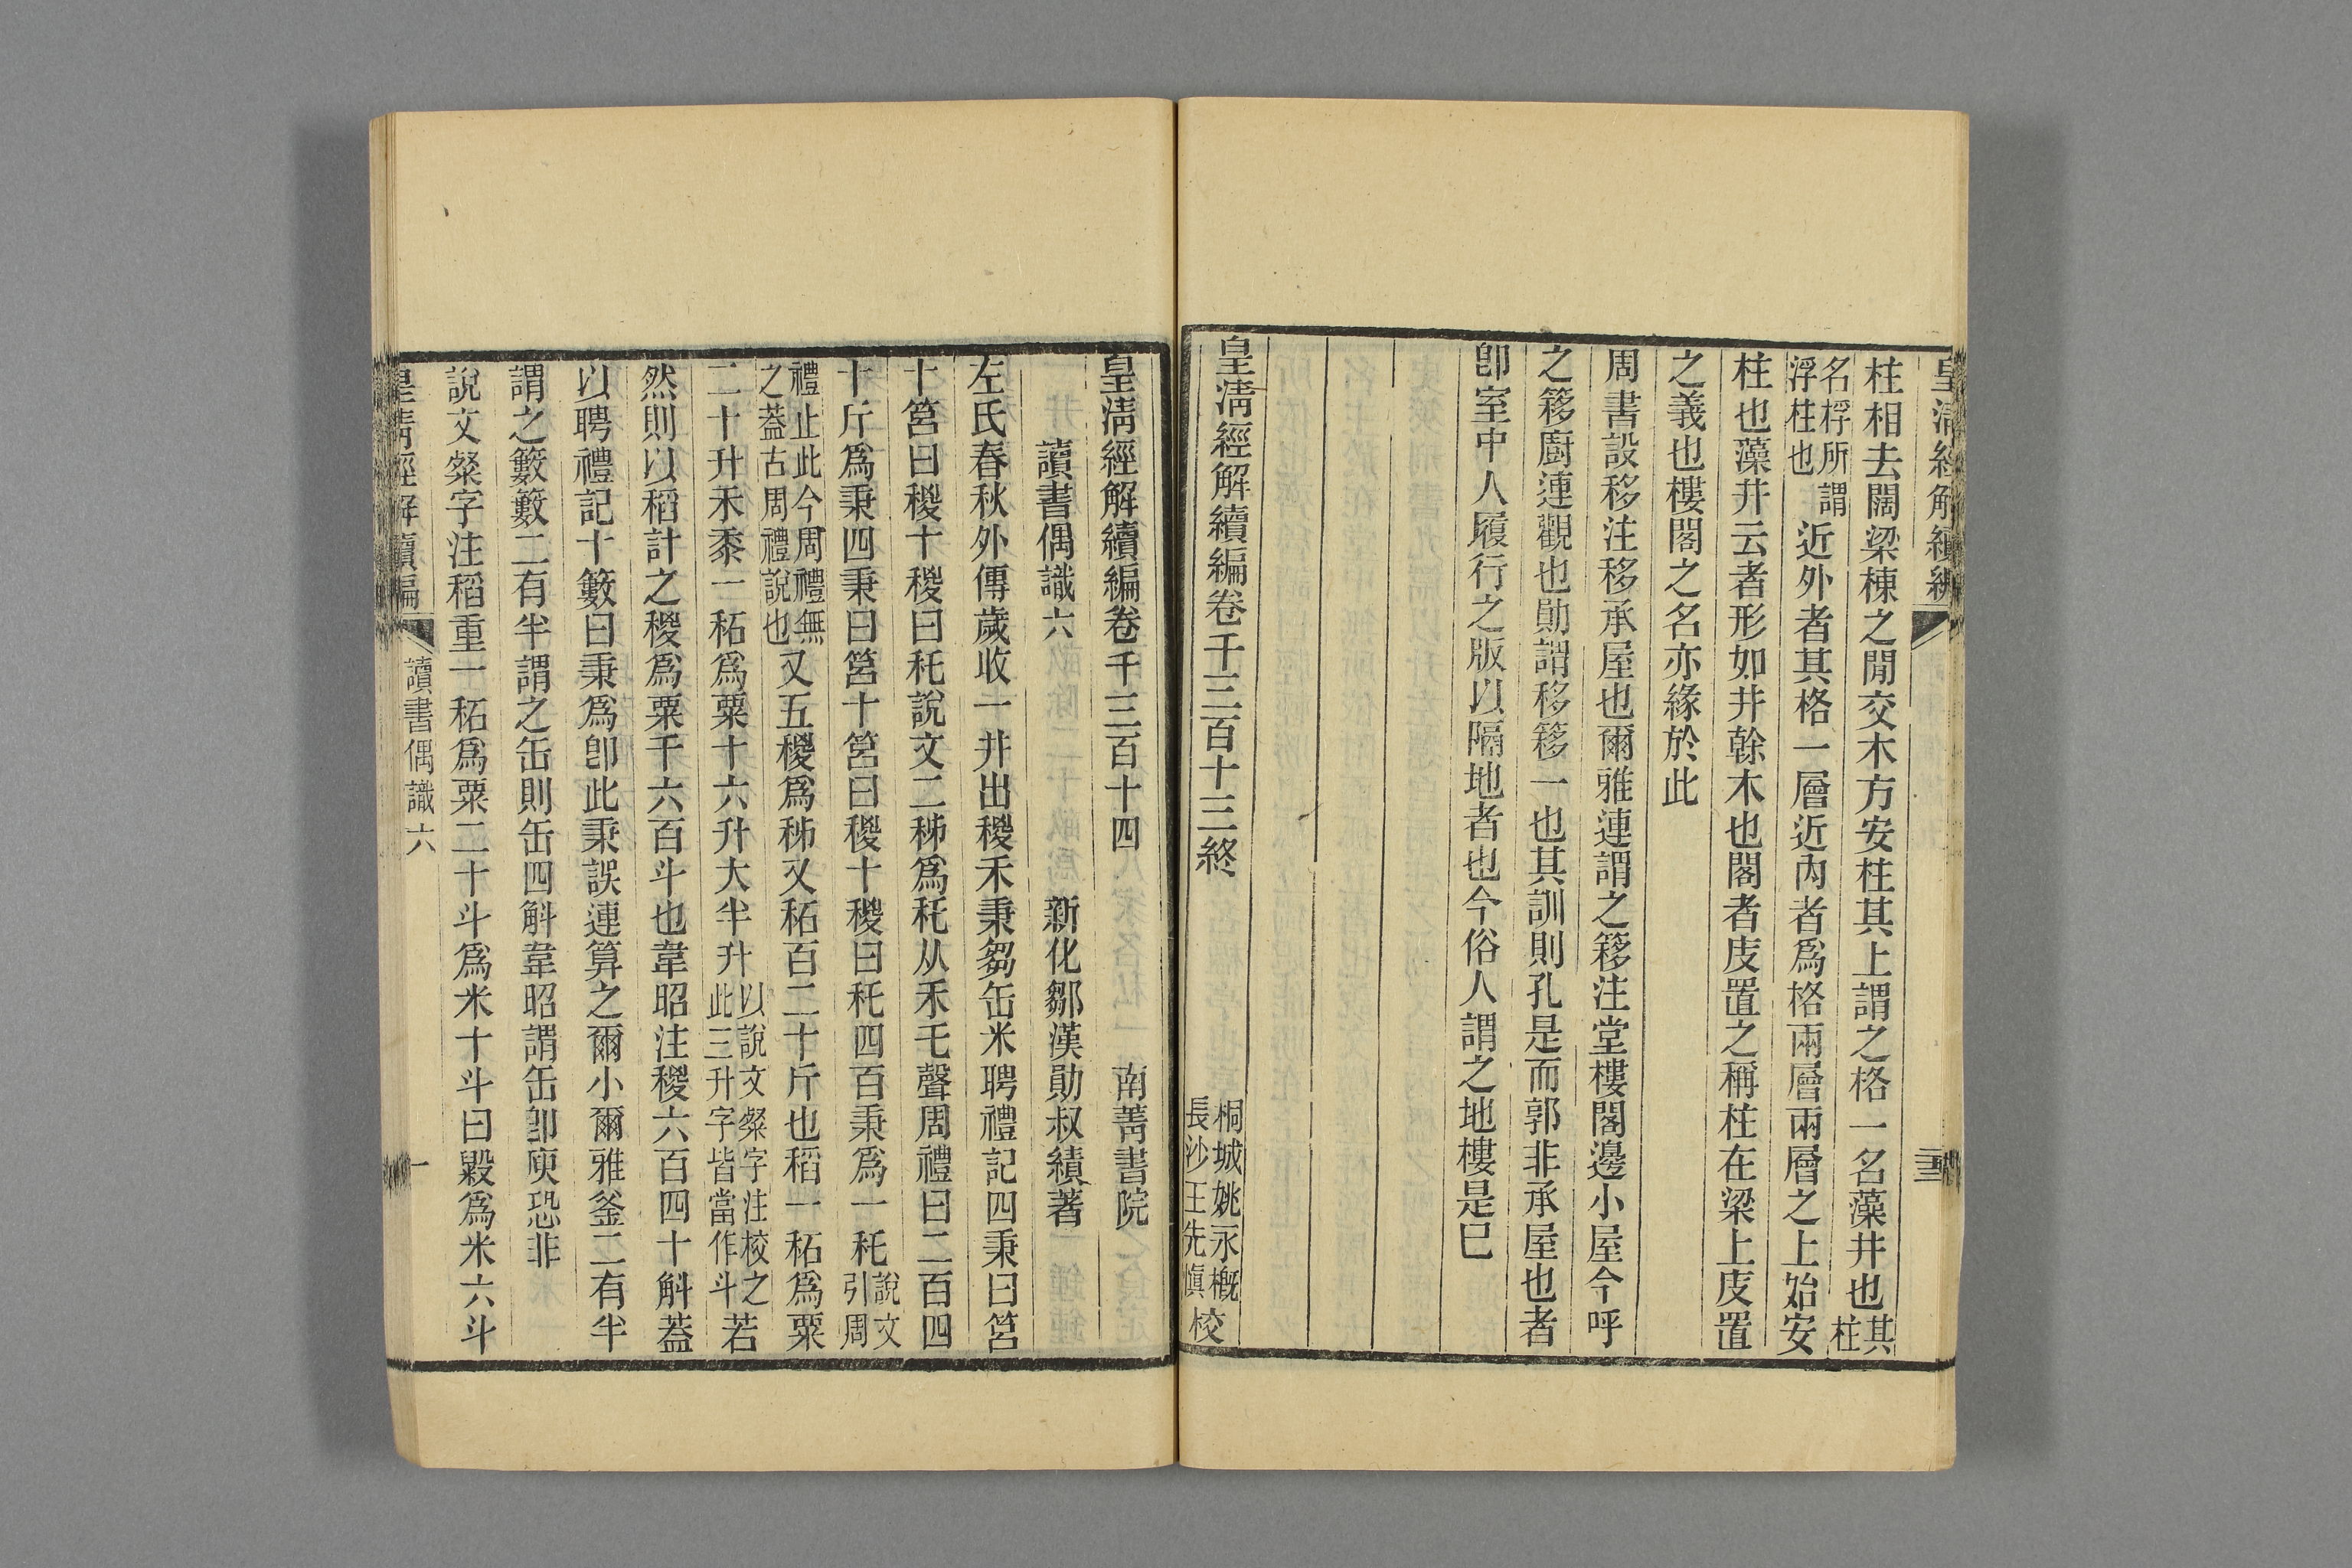 皇清經解續編
柱相去闊梁棟之閒交木方安柱其上謂之格一名藻井也其柱
名桴所謂浮柱也近外者其格一層近內者爲格兩層兩層之上始安
柱也藻井云者形如井榦木也閣者庋置之稱柱在梁上庋置
之義也樓閣之名亦緣於此
周書設移注移承屋也爾雅連謂之簃注堂樓閣邊小屋今呼
之簃廚連觀也勛謂移簃一也其訓則孔是而郭非承屋也者
卽室中人履行之版以隔地者也今俗人謂之地樓是巳
皇淸經解續編卷千三百十三終
桐城姚永概
長沙王先愼
校
皇淸經解續編卷千三百十四 南菁書院
讀書偶識六 新化鄒漢勛叔績著
左氏春秋外傳歲收一井出稯禾秉芻缶米聘禮記四秉曰筥
十筥曰稯十稯曰秅說文二秭爲秅从禾乇聲周禮曰二百四
十斤爲秉四秉曰筥十筥曰稯十稯曰秅四百秉爲一秅說文引周
禮止此今周禮無之蓋古周禮說也又五稯爲秭又秳百二十斤也稻一秳爲粟
二十升禾黍一秳爲粟十六升大半升以說文粲字注校之此三升字皆當作斗若
然則以稻計之稯爲粟千六百斗也韋昭注稯六百四十斛葢
以聘禮記十籔曰秉爲卽此秉誤連算之爾小爾雅釜二有半
謂之籔籔二有半謂之缶則缶四斛韋昭謂缶卽庾恐非
說文粲字注稻重一秳爲粟二十斗爲米十斗曰毇爲米六斗
皇清經解續編
讀書偶識六
一